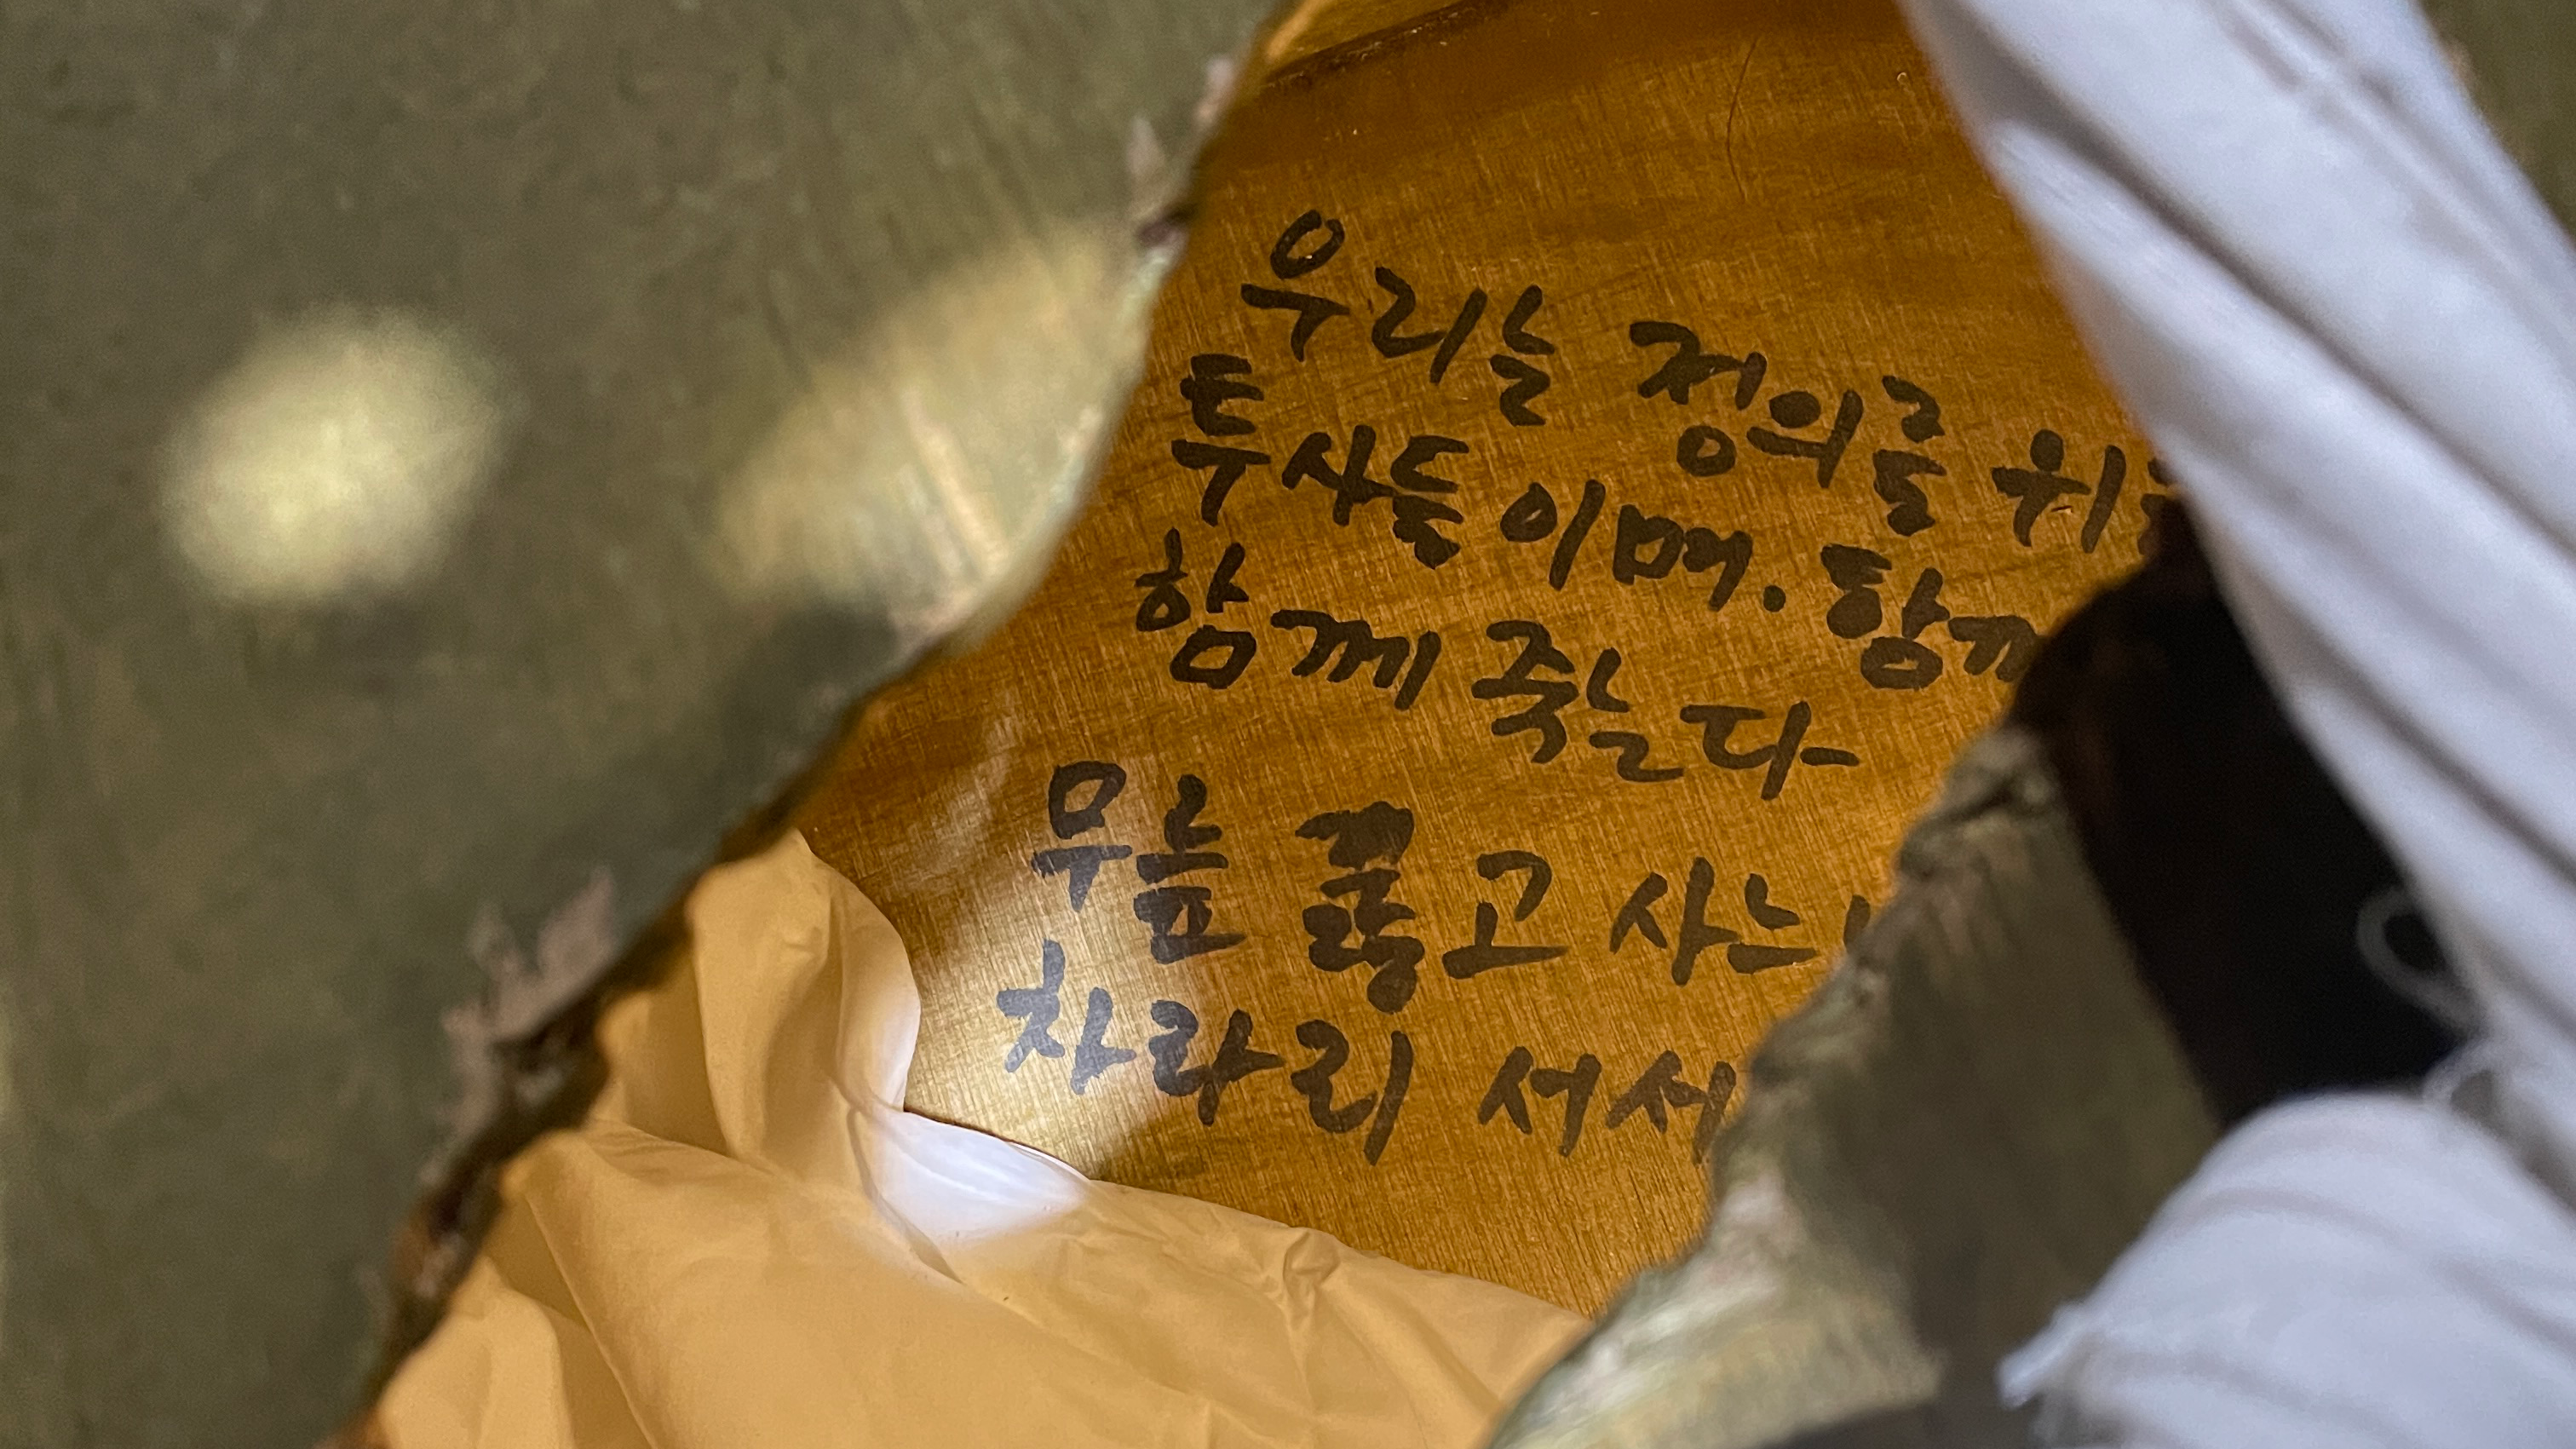 우리는 정의로 위
투사들이며. 함께
함께 죽는다
무릎 꿇고 사느니
차라리 서서